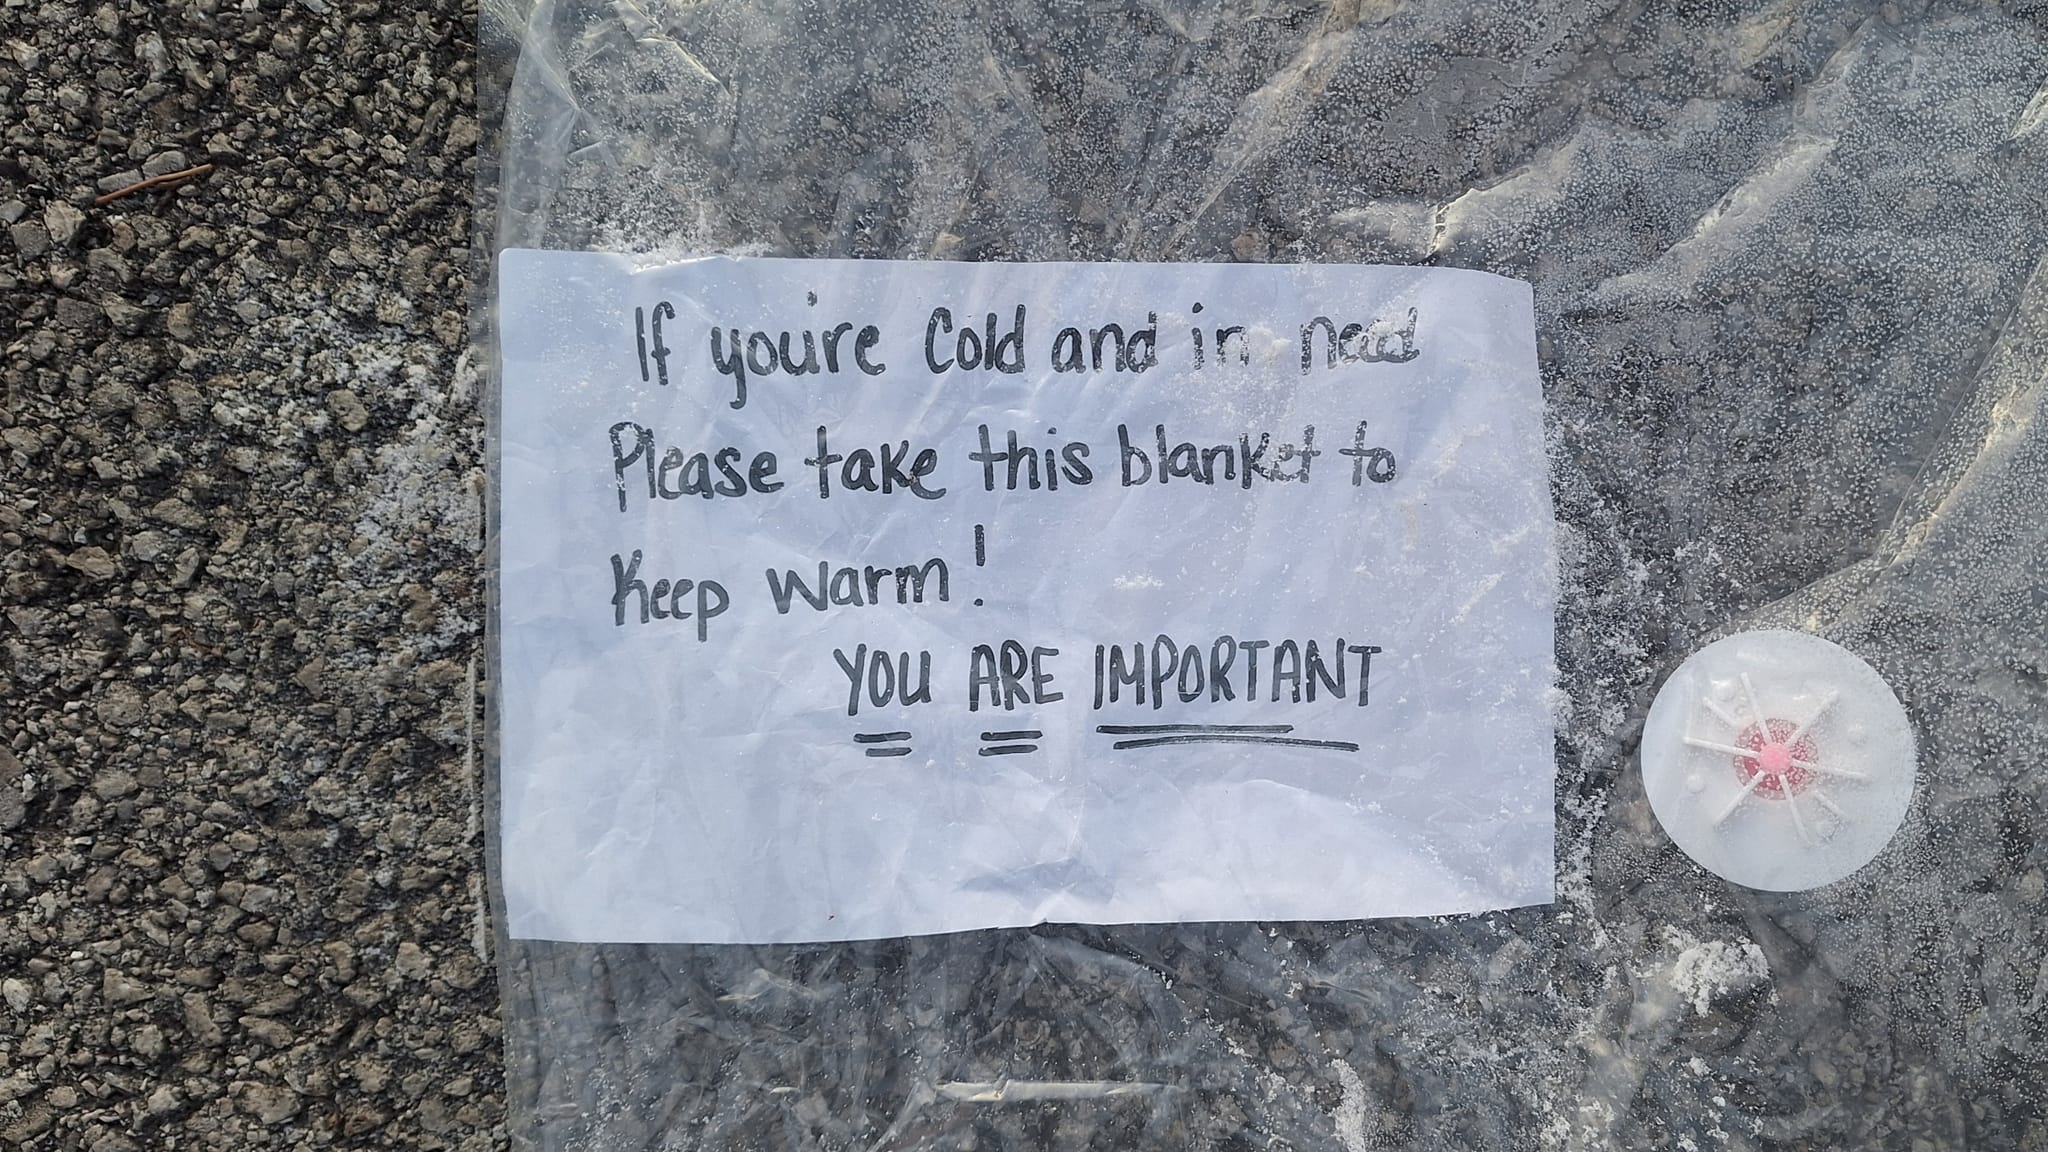 If you're Cold and in need
Please take this blanket to
Keep warm!
YOU ARE IMPORTANT